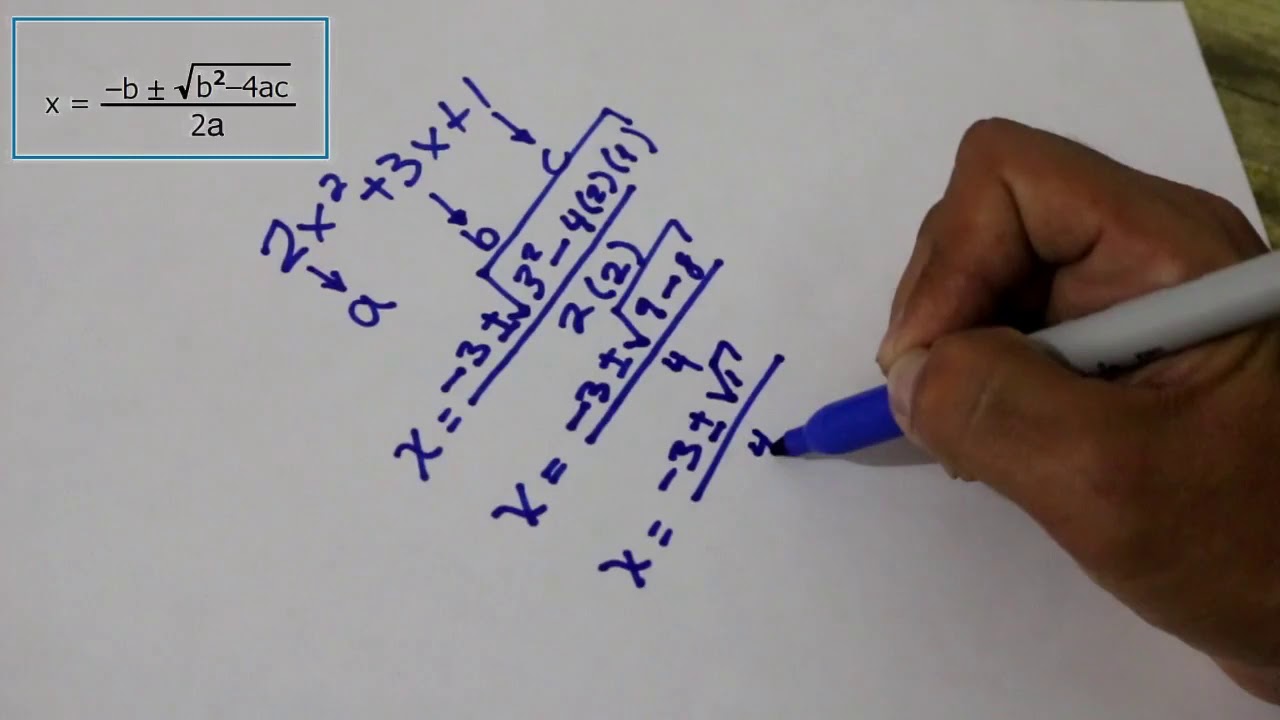 x = –b ± √b²–4ac
2a
2x² + 3x + 1
a
b
c
x = -3 ± √3² - 4(2)(1)
2(2)
x = -3 ± √9 - 8
4
x = -3 ± √1
4